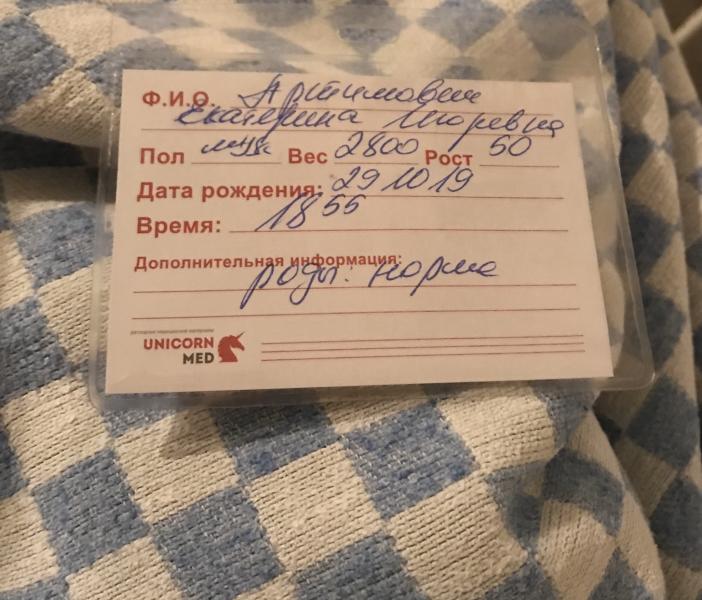 Ф.И.О. Артимович
Екатерина Игоревна
Пол муж Вес 2800 Рост 50
Дата рождения: 29 10 19
Время: 18 55
Дополнительная информация:
роды: норма
UNICORN
MED